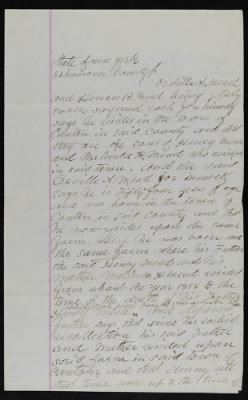 State of new york
St Lawrence County ss
Orville A. Mead
and Homan B. Mead being duly
sworn says and each for himself
says he resides in the town of
Canton in said County and that
they are the sons of Henry Mead
and Malinda H. Mead who resided
in said town, and the said
Orville A. Mead for himself
says he is fifty four years of age
and was born in the town of
Canton in said county and that
he now resides upon the same
farm where he was born and
the same farm where his Father
the said Henry Mead and his
mother Malinda H Mead resided
from about the year 1819 to the
time of the death of his Father
Henry Mead
further says that since his earliest
recollection his said Father
and Mother resided upon
said farm in said town of
Canton and that during all
that time and up to the time of